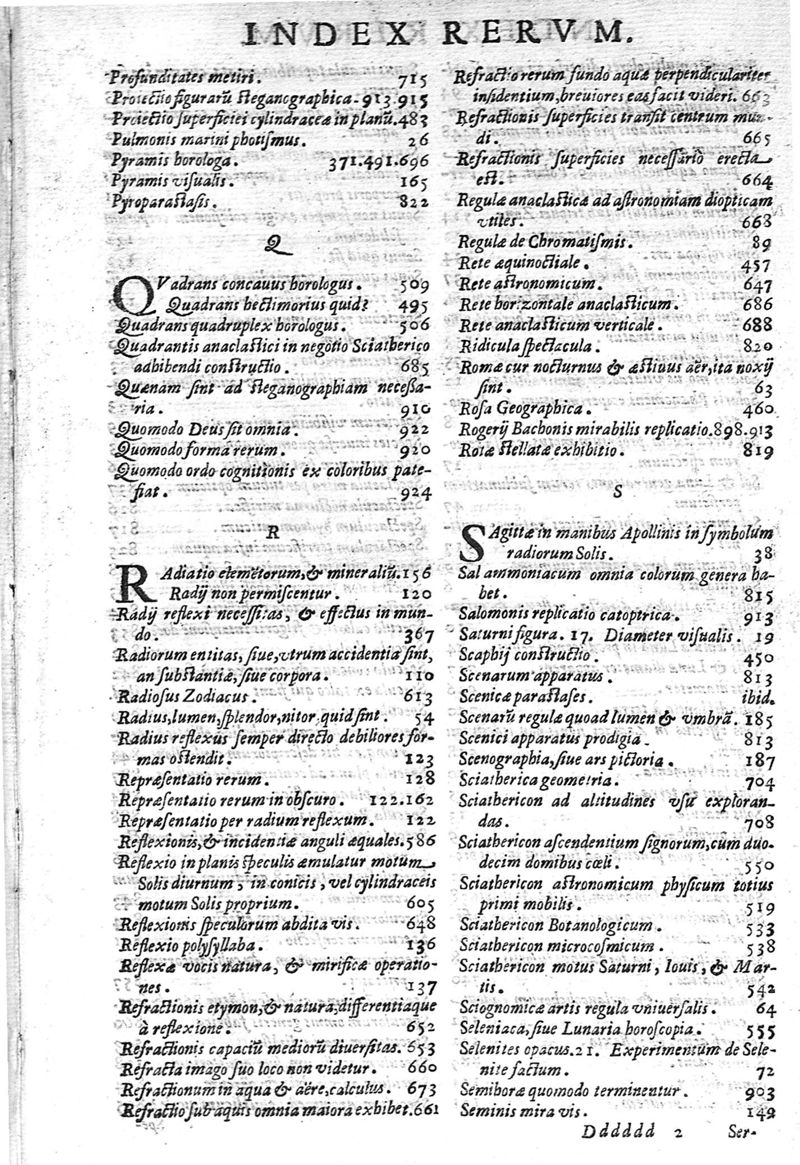 INDEX RERVM.
Profunditates metiri. 715
Proiectio figurarũ steganographica. 913.915
Proiectio superficiei cylindraceæ in planũ. 483
Pulmonis marini photismus. 26
Pyramis horologa. 371.491.696
Pyramis visualis. 165
Pyroparastasis. 822
Q
QVadrans concauus horologus. 509
Quadrans hectimorius quid? 495
Quadrans quadruplex horologus. 506
Quadrantis anaclastici in negotio Sciatherico
adhibendi constructio. 685
Quænam sint ad steganographiam necessa-
ria. 910
Quomodo Deus sit omnia. 922
Quomodo forma rerum. 920
Quomodo ordo cognitionis ex coloribus pate-
fiat. 924
R
RAdiatio elemẽtorum, & mineraliũ. 156
Radij non permiscentur. 120
Radij reflexi necessitas, & effectus in mun-
do. 367
Radiorum entitas, siue, vtrum accidentia sint,
an substantiæ, siue corpora. 110
Radiosus Zodiacus. 613
Radius, lumen, splendor, nitor quid sint. 54
Radius reflexus semper directo debiliores for-
mas ostendit. 123
Repræsentatio rerum. 128
Repræsentatio rerum in obscuro. 122.162
Repræsentatio per radium reflexum. 122
Reflexionis, & incidentiæ anguli æquales. 586
Reflexio in planis speculis æmulatur motum
Solis diurnum, in conicis, vel cylindraceis
motum Solis proprium. 605
Reflexionis speculorum abdita vis. 648
Reflexio polysyllaba. 136
Reflexæ vocis natura, & mirificæ operatio-
nes. 137
Refractionis etymon, & natura, differentiaque
à reflexione. 652
Refractionis capaciũ mediorũ diuersitas. 653
Refracta imago suo loco non videtur. 660
Refractionum in aqua & aëre, calculus. 673
Refractio sub aquis omnia maiora exhibet. 661
Refractio rerum fundo aquæ perpendiculariter
insidentium, breuiores eas facit videri. 663
Refractionis superficies transit centrum mun-
di. 665
Refractionis superficies necessariò erecta
est. 664
Regulæ anaclasticæ ad astronomiam diopticam
vtiles. 668
Regulæ de Chromatismis. 89
Rete æquinoctiale. 457
Rete astronomicum. 647
Rete horizontale anaclasticum. 686
Rete anaclasticum verticale. 688
Ridicula spectacula. 820
Romæ cur nocturnus & æstiuus aër, ita noxij
sint. 63
Rosa Geographica. 460
Rogerij Bachonis mirabilis replicatio. 898.913
Rotæ stellatæ exhibitio. 819
S
SAgittæ in manibus Apollinis in symbolum
radiorum Solis. 38
Sal ammoniacum omnia colorum genera ha-
bet. 815
Salomonis replicatio catoptrica. 913
Saturni figura. 17. Diameter visualis. 19
Scaphij constructio. 450
Scenarum apparatus. 813
Scenicæ parastases. ibid.
Scenarũ regulæ quoad lumen & vmbrã. 185
Scenici apparatus prodigia. 813
Scenographia, siue ars pictoria. 187
Sciatherica geometria. 704
Sciathericon ad altitudines vsu exploran-
das. 708
Sciathericon ascendentium signorum, cum duo-
decim domibus cœli. 550
Sciathericon astronomicum physicum totius
primi mobilis. 519
Sciathericon Botanologicum. 533
Sciathericon microcosmicum. 538
Sciathericon motus Saturni, Iouis, & Mar-
tis. 542
Sciognomicæ artis regula vniuersalis. 64
Seleniaca, siue Lunaria horoscopia. 555
Selenites opacus. 21. Experimentum de Sele-
nite factum. 72
Semihoræ quomodo terminentur. 903
Seminis mira vis. 149
Dddddd 2 Ser-